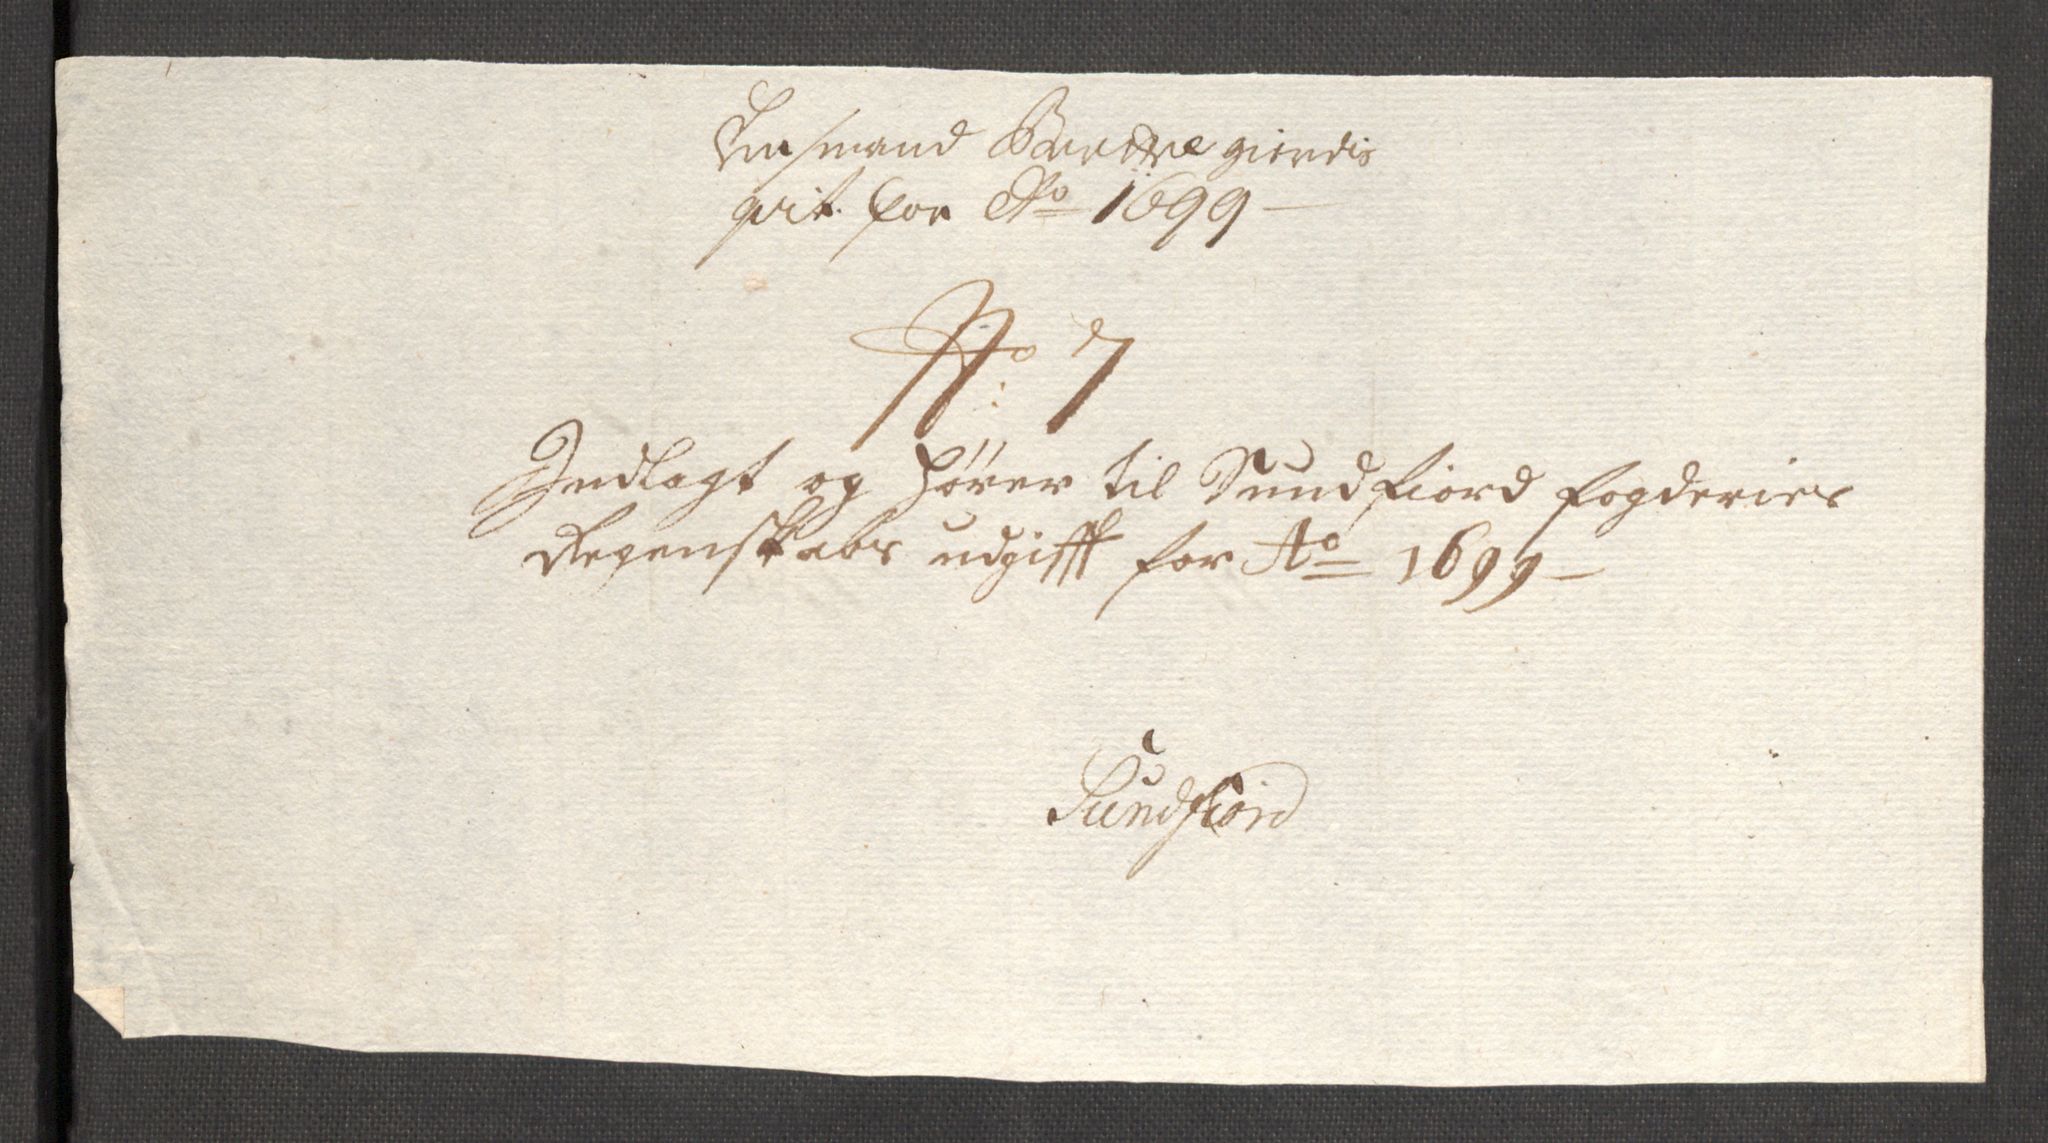 qvit. for Ao 1699
No: 7
Indlagt og hører til Sundfiord fogderies
Regenskabs udgifft for Ao 1699
Sundfiord